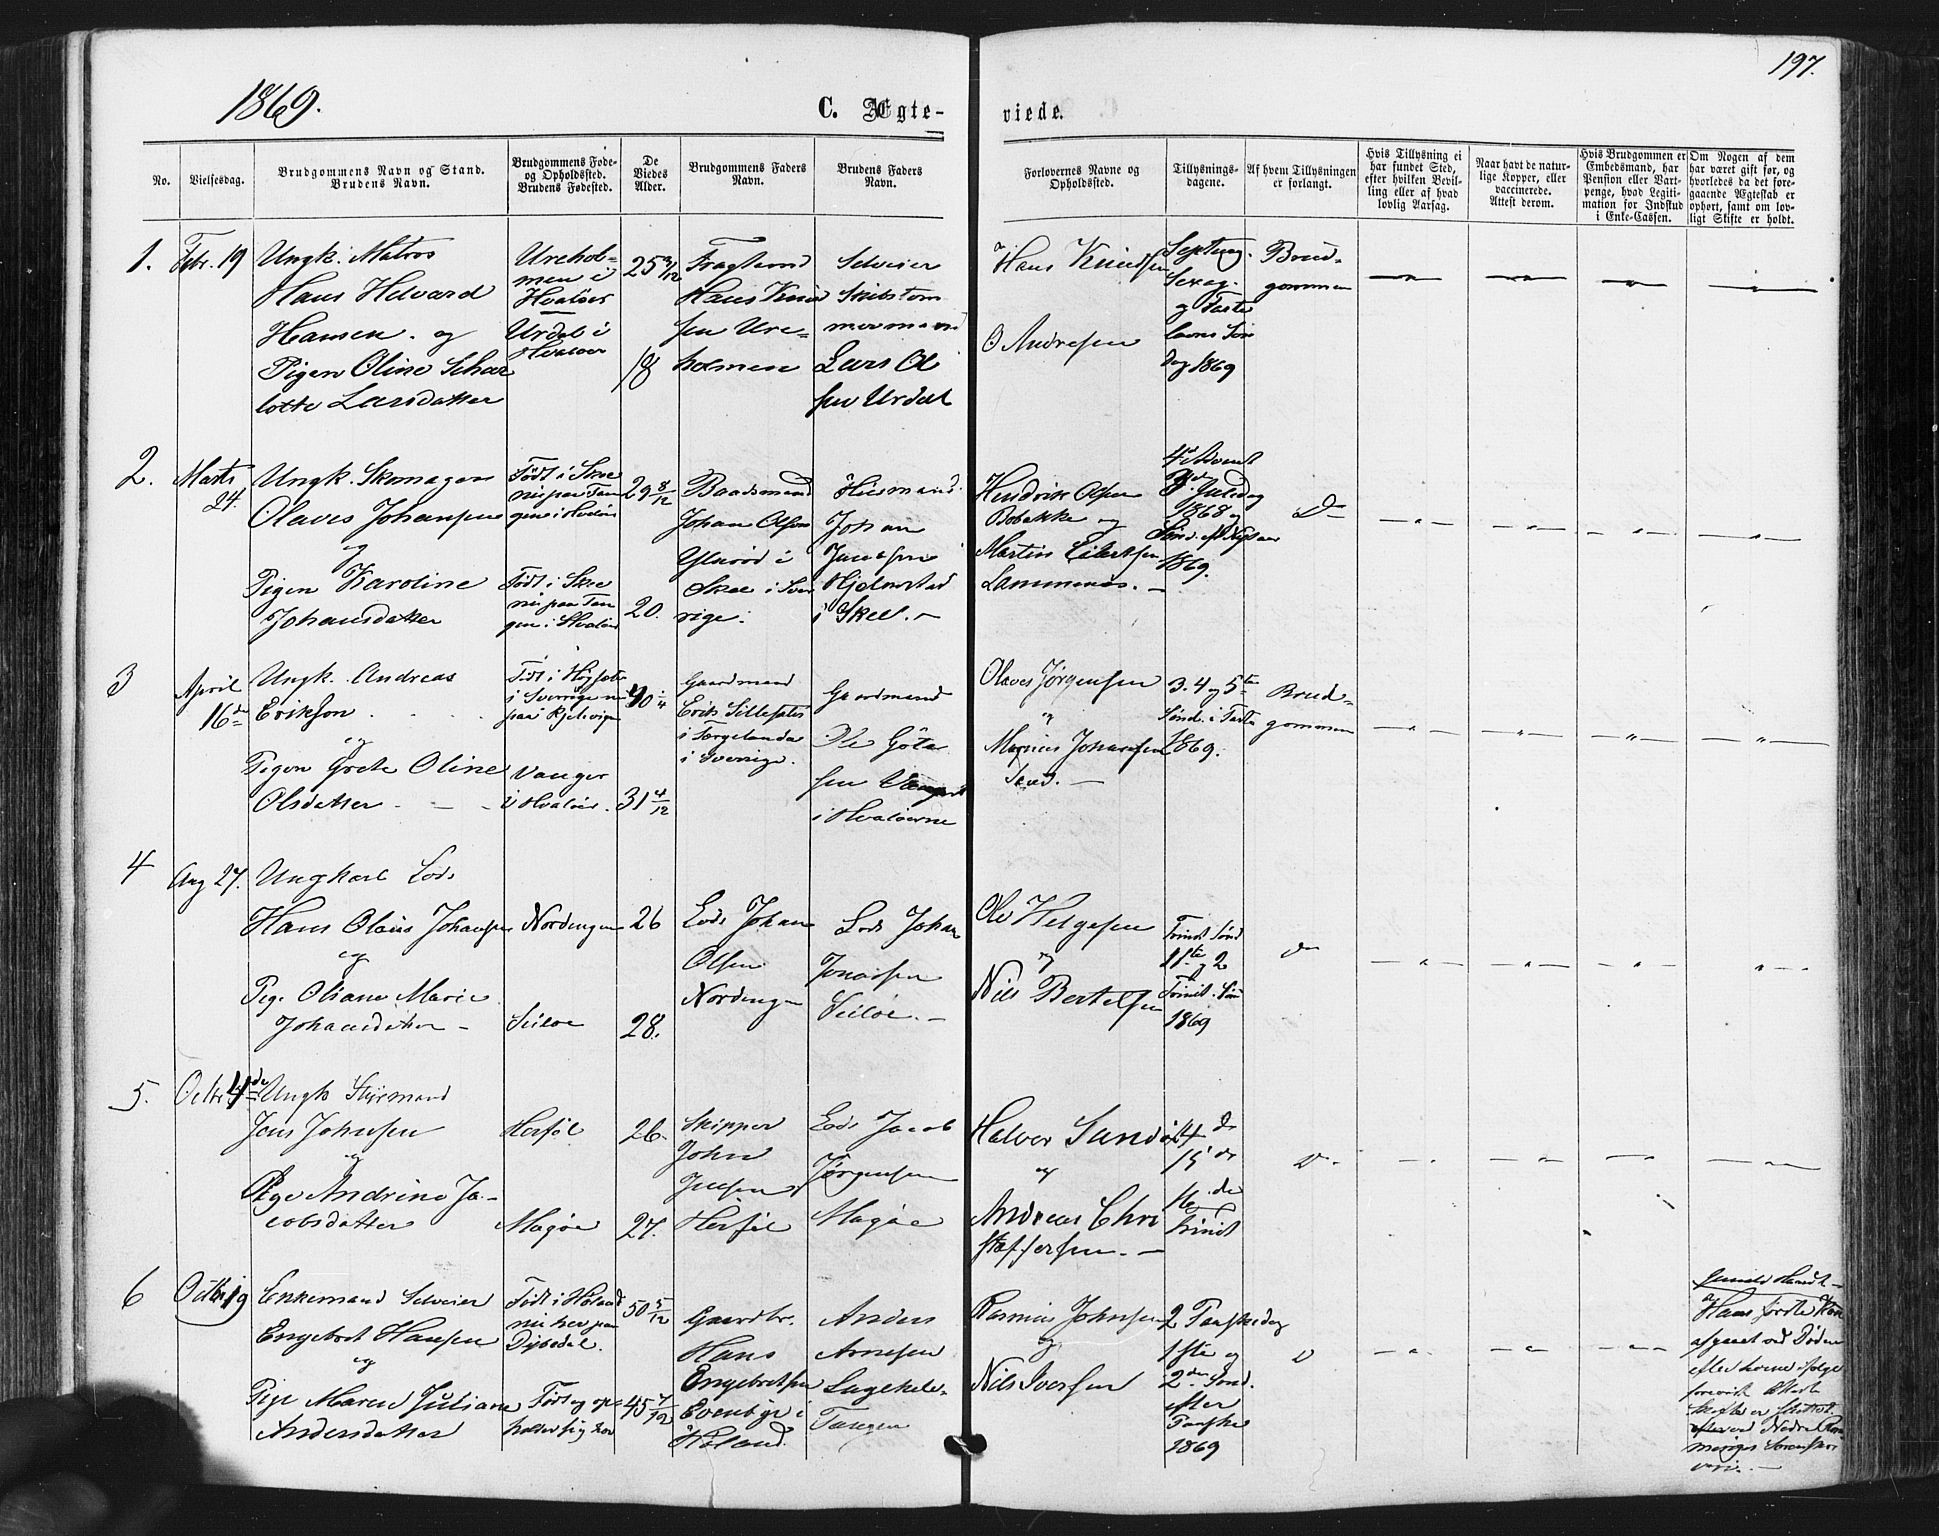 197.
1869.
C. Ægte-
viede.
No.
Vielsesdag.
Brudgommens Navn og Stand.
Brudens Navn.
Brudgommens Føde-
og Opholdssted.
Brudens Fødested.
De
Viedes
Alder.
Brudgommens Faders
Navn.
Brudens Faders
Navn.
Forlovernes Navne og
Opholdssted.
Tillysnings-
dagene.
Af hvem Tillysningen
er forlangt.
Hvis Tillysning ei
har fundet Sted,
efter hvilken Bevil-
ling eller af hvad
lovlig Aarsag.
Naar havt de natur-
lige Kopper, eller
vaccinerede.
Attest derom.
Hvis Brudgommen er
Embedsmand, har
Pension eller Vart-
penge, hvad Legiti-
mation for Indskud
i Enke-Cassen.
Om Nogen af dem
har været gift før, og
hvorledes da det fore-
gaaende Ægteskab er
ophørt, samt om lov-
ligt Skifte er holdt.
1.
Febr. 19
Ungk. Matros
Hans Helvard
Hansen. og
Pigen Oline Schar
lotte Larsdatter
Urehol-
men i
Hvaløer
Urdal i
Hvaløer
25
18
Fragtmand
Hans Knud
sen Ure-
holmen
Selveier
Skibstøm
mermand
Lars Ol
sen Urdal
Hans Knudsen
O Andresen
Septuag.
Sexag.
og Faste
lavns Søn
dag 1869
Brud-
gommen
2.
Marts
24.
Ungk. Skomager
Olaves Johansen
og
Pigen Karoline
Johansdatter
Født i Skee
nu paa Tan
gen i Hvaløer
Født i Skee
nu paa Tan
gen i Hvaløer
29 8/12
20.
Baadsmand
Johan Olsen
i
Skee i Sver
rige.
Huusmand
Johan
Hjelmstad
i Skee. -
Hendrik Olsen
Bobakke og
Martin Eilertsen
Lammenes. -
4de Advent
Juledag
1868 og
Sønd. eft. Nytaar
1869.
Do
3
April
16de
Ungk. Andreas
Erikson
og
Pigen Grete Oline
Olsdatter
Født i
i Sverrige nu
paa Kjølvigen
Vauger
i Hvaløer.
40 1/4
31 4/12
Gaardmand
Erik
i Færgelanda
i Sverrige.
Gaardmand
Ole Göta
sen
i Hvaløerne
Olaves Jørgensen
og
Johansen
Sand. -
3. 4 og 5te
Sønd. i Faste
1869.
Brud-
gommen
4
Aug 27.
Ungkarl Lods
Hans Olaus Johansen
og
Pige Oliane Marie
Johansdatter -
Nordengen
Seiløe
26
28.
Lods Johan
Olsen
Nordengen
Lods Johan
Jonassen
Seiløe. -
Ole Helgesen
og
Nils Bertelsen
Trinit Sønd
11te og 2
Trinit. Søn
1869
do
5.
Octbr 4de
Ungk Styrmand
Jens Johnsen
og
Pige Andrine Ja-
cobsdatter
Herføl
Magøe
26.
27.
Skipper
John
Jensen
Herføl
Lods Jacob
Jørgensen
Magøe
Halvor Sandø
og
Andreas Chri
stoffersen. -
14 de
15 de
16 de
Trinit
Do
6
Octbr 19
Enkemand Selveier
Engebret Hansen
og
Pige Maren Juliane
Andersdatter
Født i Høland
nu her paa
Dybedal.
Født og op-
holder sig her
50 5/12
45 7/12
Gaardbr.
Hans
Engebretsen
Evenbye i
Høland.
Anders
Arnesen
Tangen
Rasmus Johnsen
og
Nils Iversen
2 Paaskedag
1ste og
2den Sønd.
efter
Paaske
1869
Do
Hans første Kone
afgaaet ved Døden
efter herom ifølge
forevist Attest
Skifte er sluttet
ved Nedre Ro
meriges Sorenskri
veri. -